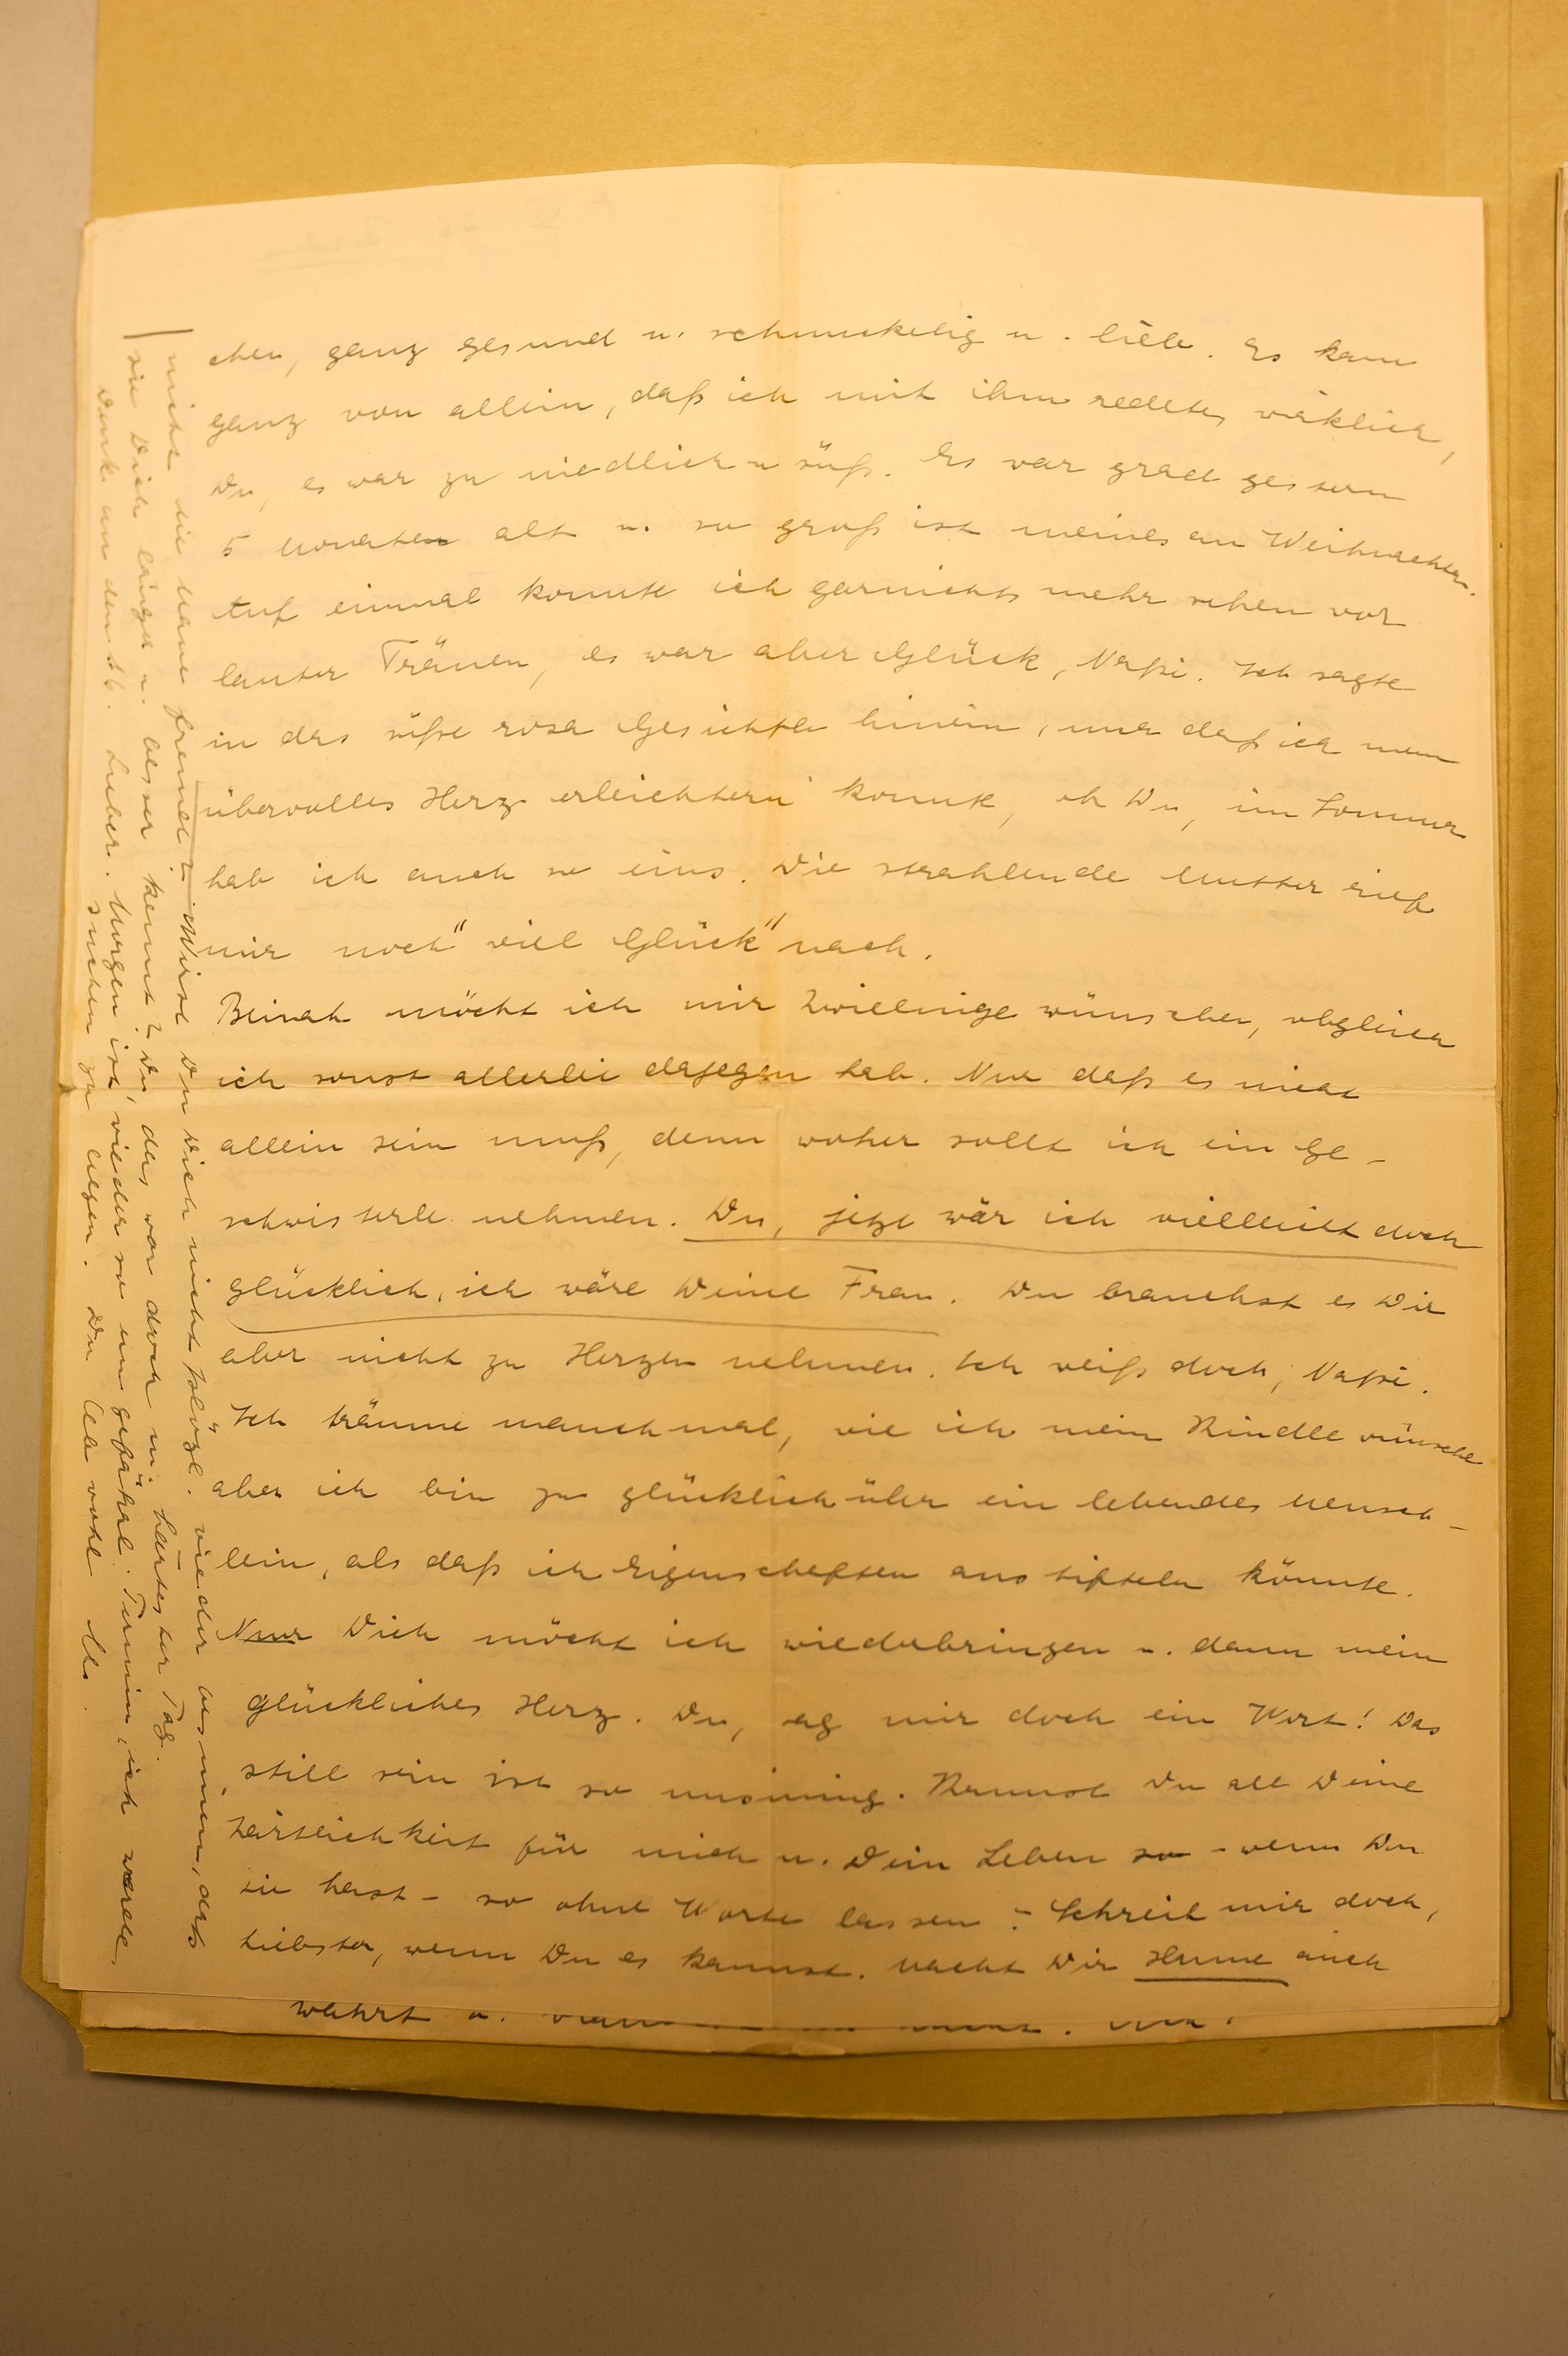 chen, ganz gesund u. schmuckelig u. lieb. Es kam
ganz von allein, daß ich mit ihm redete, wirklich,
Du, es war zu niedlich u süß. Es war grad gestern
5 Monate alt u. so groß ist meines an Weihnachten.
Auf einmal konnte ich garnichts mehr sehen vor
lauter Tränen, es war aber Glück, Naßi. Ich sagte
in das süße rosa Gesichtle hinein, nur daß ich mein
übervolles Herz erleichtern konnte, oh Du, im Sommer
hab ich auch so eins. Die strahlende Mutter rief
mir noch "viel Glück" nach.
Beinah möcht ich mir Zwillinge wünschen, obgleich
ich sonst allerlei dagegen hab. Nur daß es nicht
allein sein muß, denn woher sollt ich ein Ge-
schwisterle nehmen. Du, jetzt wär ich vielleicht doch
glücklich, ich wäre Deine Frau. Du brauchst es Dir
aber nicht zu Herzen nehmen. Ich weiß doch, Naßi.
Ich träume manchmal, wie ich mein Kindle wünsche
aber ich bin zu glücklich über ein lebendes Mensch-
lein, als daß ich Eigenschaften austifteln könnte.
Nur Dich möcht ich wiederbringen u. dann mein
glückliches Herz. Du, sag mir doch ein Wort! Das
still sein ist so unsinnig. Kannst Du all Deine
Zärtlichkeit für mich u. Dein Leben so - wenn Du
sie hast - so ohne Worte lassen? Schreib mir doch,
Liebster, wenn Du es kannst. Macht Dir Hanne auch
nicht die Mane fremd? Wirst Du Dich nicht plözl. wieder besinnen, daß
sie Dich länger u. besser kennt? Du das war doch m. härtester Tag.
Denk an den 16. Lieber. Morgen ist wieder so ein gefährl. Termin, ich werde
suchen zu liegen. Du leb wohl
wahrt u.